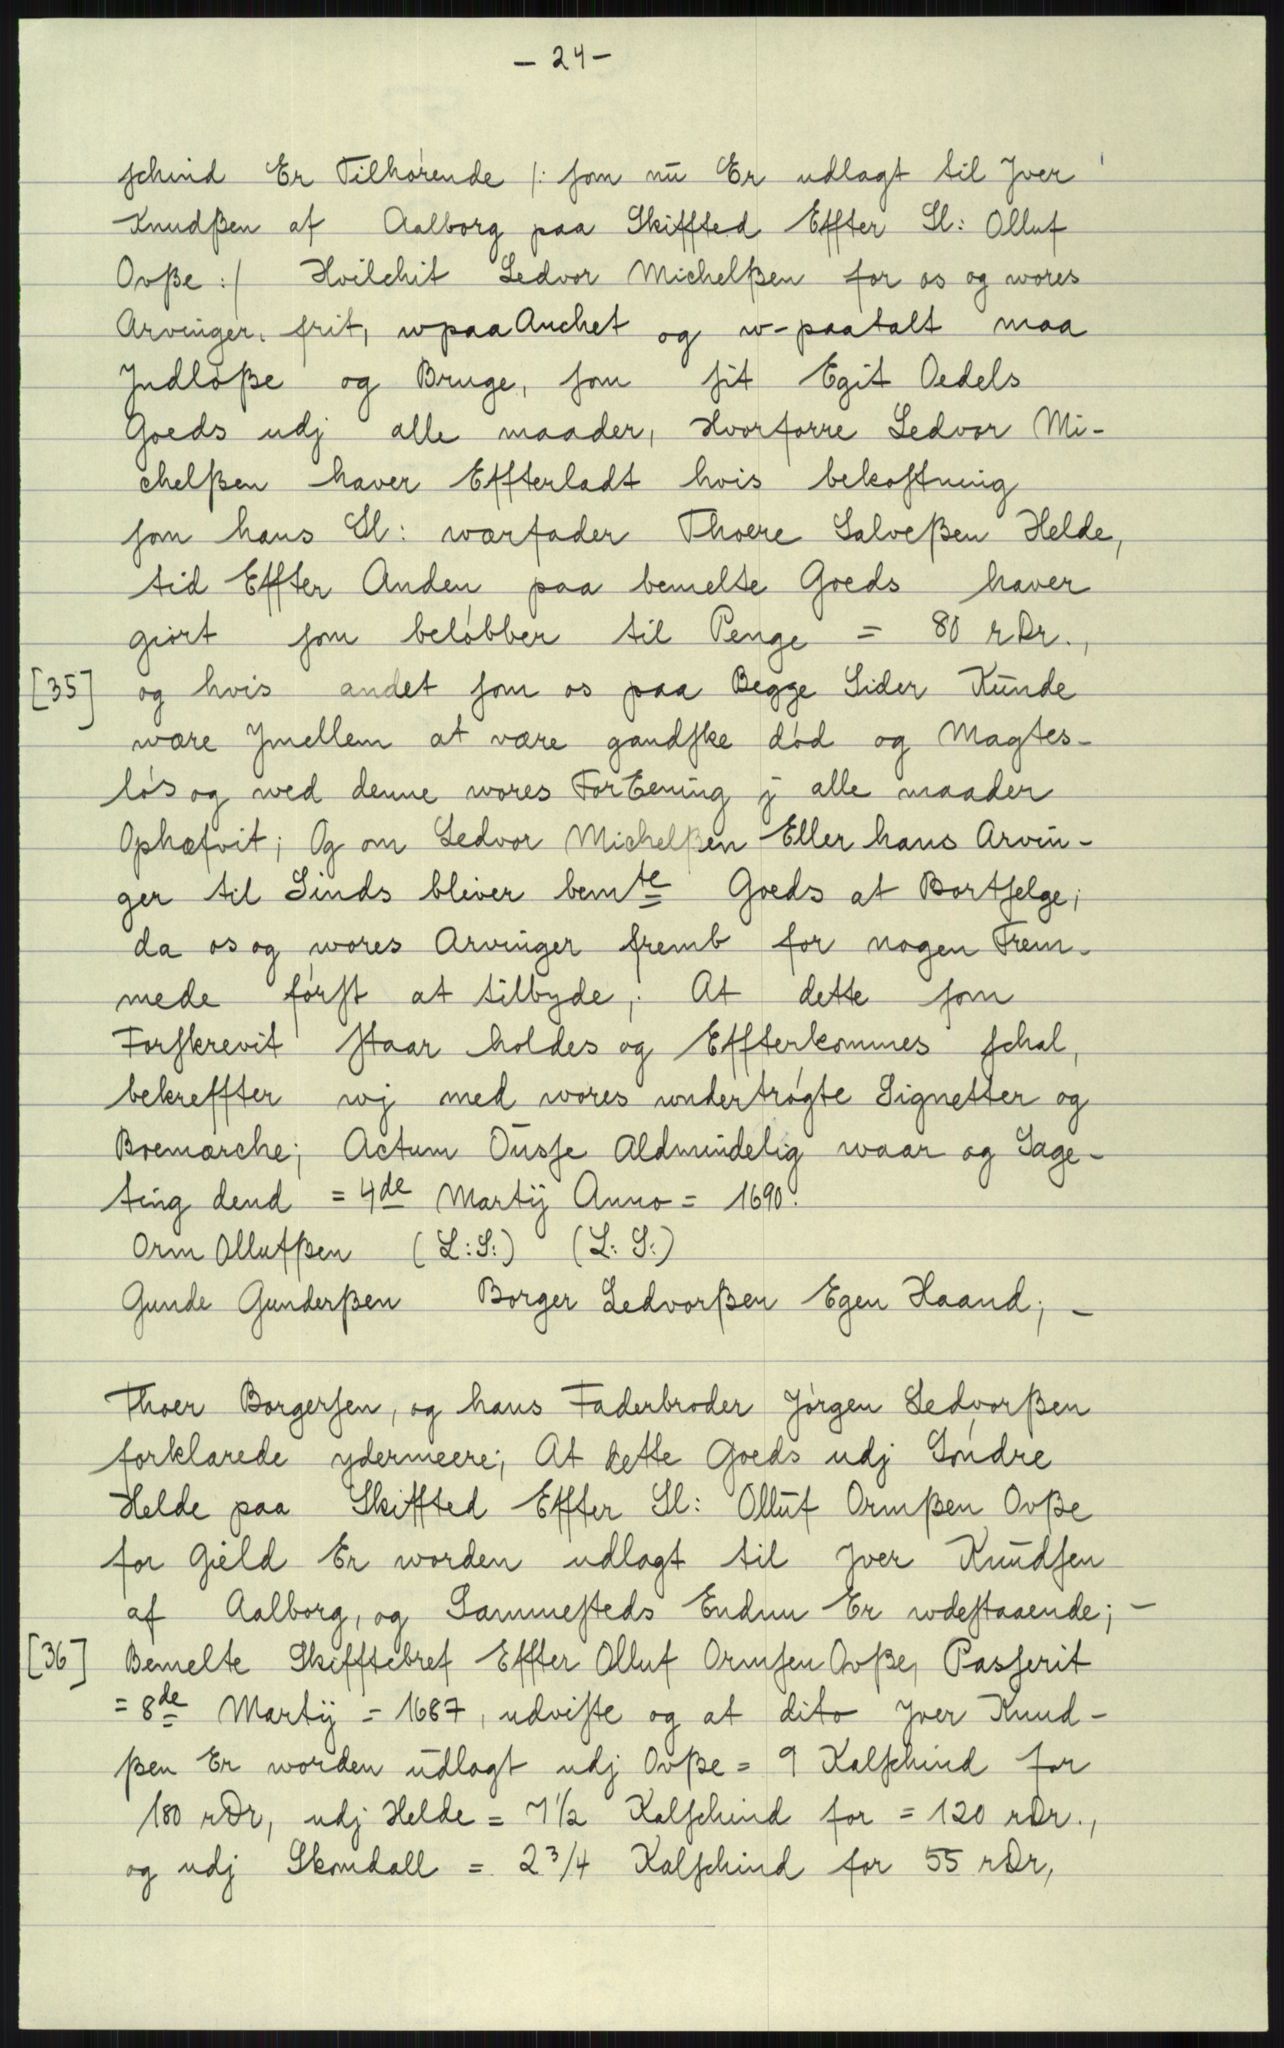 - 24 -
schind Er Tilhørende /: som nu Er udlagt til Jver
Knudßen af Aalborg paa Skiffted Effter Sl: Olluf
Ovße :/ Hvilchit Sedvor Michelßen for os og wores
Arvinger. frit, wpaaAnchet og w-paatalt maa
Jndløße og Bruge, som sit Egit Oedels
Goeds udj alle maader, Hvorforre Sedvor Mi-
chelßen haver Effterladt hvis bekostning
som hans Sl: wærfader Thoere Salveßen Helde,
tid Effter Anden paa bemelte Goeds haver
giørt som beløbber til Penge = 80 rDr.,
[35] og hvis andet som os paa Begge Sider Kunde
wære Jmellem at være gandske død og Magtes-
løs og wed denne wores ForEening j alle maader
Ophæfvit; Og om Sedvor Michelßen Eller hans Arvin-
ger til Sinds bliver bemte Goeds at Bortselge;
da os og wores Arvinger fremb for nogen Frem-
mede først at tilbyde; At dette som
Forskrevit staar holdes og Effterkommes schal,
bekreffter wj med wores undertrøgte Signetter og
Boemærche; Actum Ousse Aldmindelig waar og Sage-
ting dend = 4de Martij Anno = 1690.
Orm Ollufßen (L:S:) (L:S:)
Gunde Gunderßen Borger Sedvorßen Egen Haand; -
Thoer Borgersen, og hans Faderbroder Jørgen Sedvorßen
forklarede ydermeere; At dette Goeds udj Søndre
Helde paa Skiffted Effter Sl: Olluf Ormßen Ovße
for Gield Er worden udlagt til Jver Knudsen
af Aalborg, og Sammesteds Endnu Er wdestaaende; -
[36] Bemelte Skifftebref Effter Olluf Ormsen Ovße, Passerit
= 8de Martij = 1687, udviste og at dito Jver Knud-
ßen Er worden udlagt udj Ovße = 9 Kalfschind for
180 rDr, udj Helde = 7 1/2 Kalfschind for = 120 rDr.,
og udj Skomdall = 2 3/4 Kalfschind for 55 rDr,